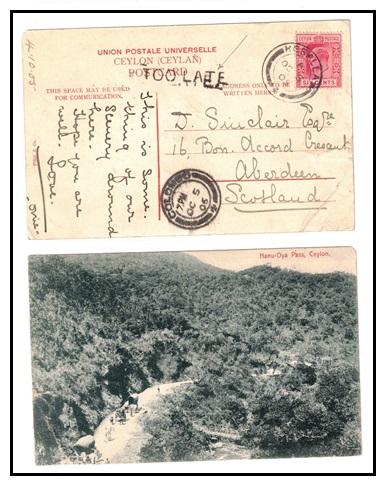 4.10.05
UNION POSTALE UNIVERSELLE
CEYLON (CEYLAN)
POSTCARD
TOO LATE
THIS SPACE MAY BE USED
FOR COMMUNICATION.
ADDRESS ONLY TO BE
WRITTEN HERE.
CEYLON POSTAGE
SIX CENTS
This is some
thing of our
Scenery around
here.
Hope you are
well. Love.
D. Sinclair Esqre
16, Bon Accord Crescent
Aberdeen
Scotland
COLOMBO
7 PM
OC 5
05
Nanu-Oya Pass, Ceylon.